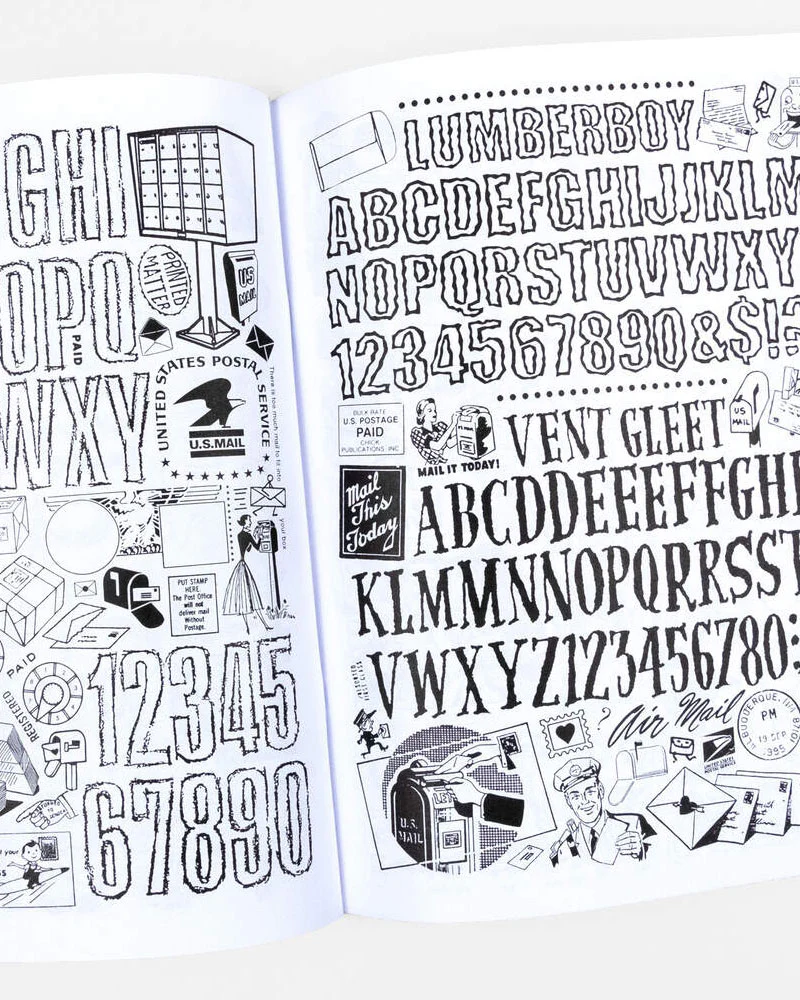 GHI
OPQ
PRINTED
MATTER
US
MAIL
PAID
WXY
UNITED STATES POSTAL SERVICE
U.S.MAIL
There is too much mail to fit into
your box
PUT STAMP
HERE.
The Post Office
will not
deliver mail
Without
Postage.
PAID
REGISTERED
12345
67890
LUMBERBOY
ABCDEFGHIJJKLM
NOPQRSTUVWXY
1234567890&$!?
BULK RATE
U.S. POSTAGE
PAID
CHICK
PUBLICATIONS INC
MAIL IT TODAY!
VENT GLEET
US
MAIL
Mail
This
Today
ABCDDEEEFFGHI
KLMMNNOPQRRSST
VWXYZ123456780:
Air Mail
?
ALBUQUERQUE, NM
PM
19 SEP
1995
UNITED STATES
POSTAL SERVICE
LET
U.S.
MAIL